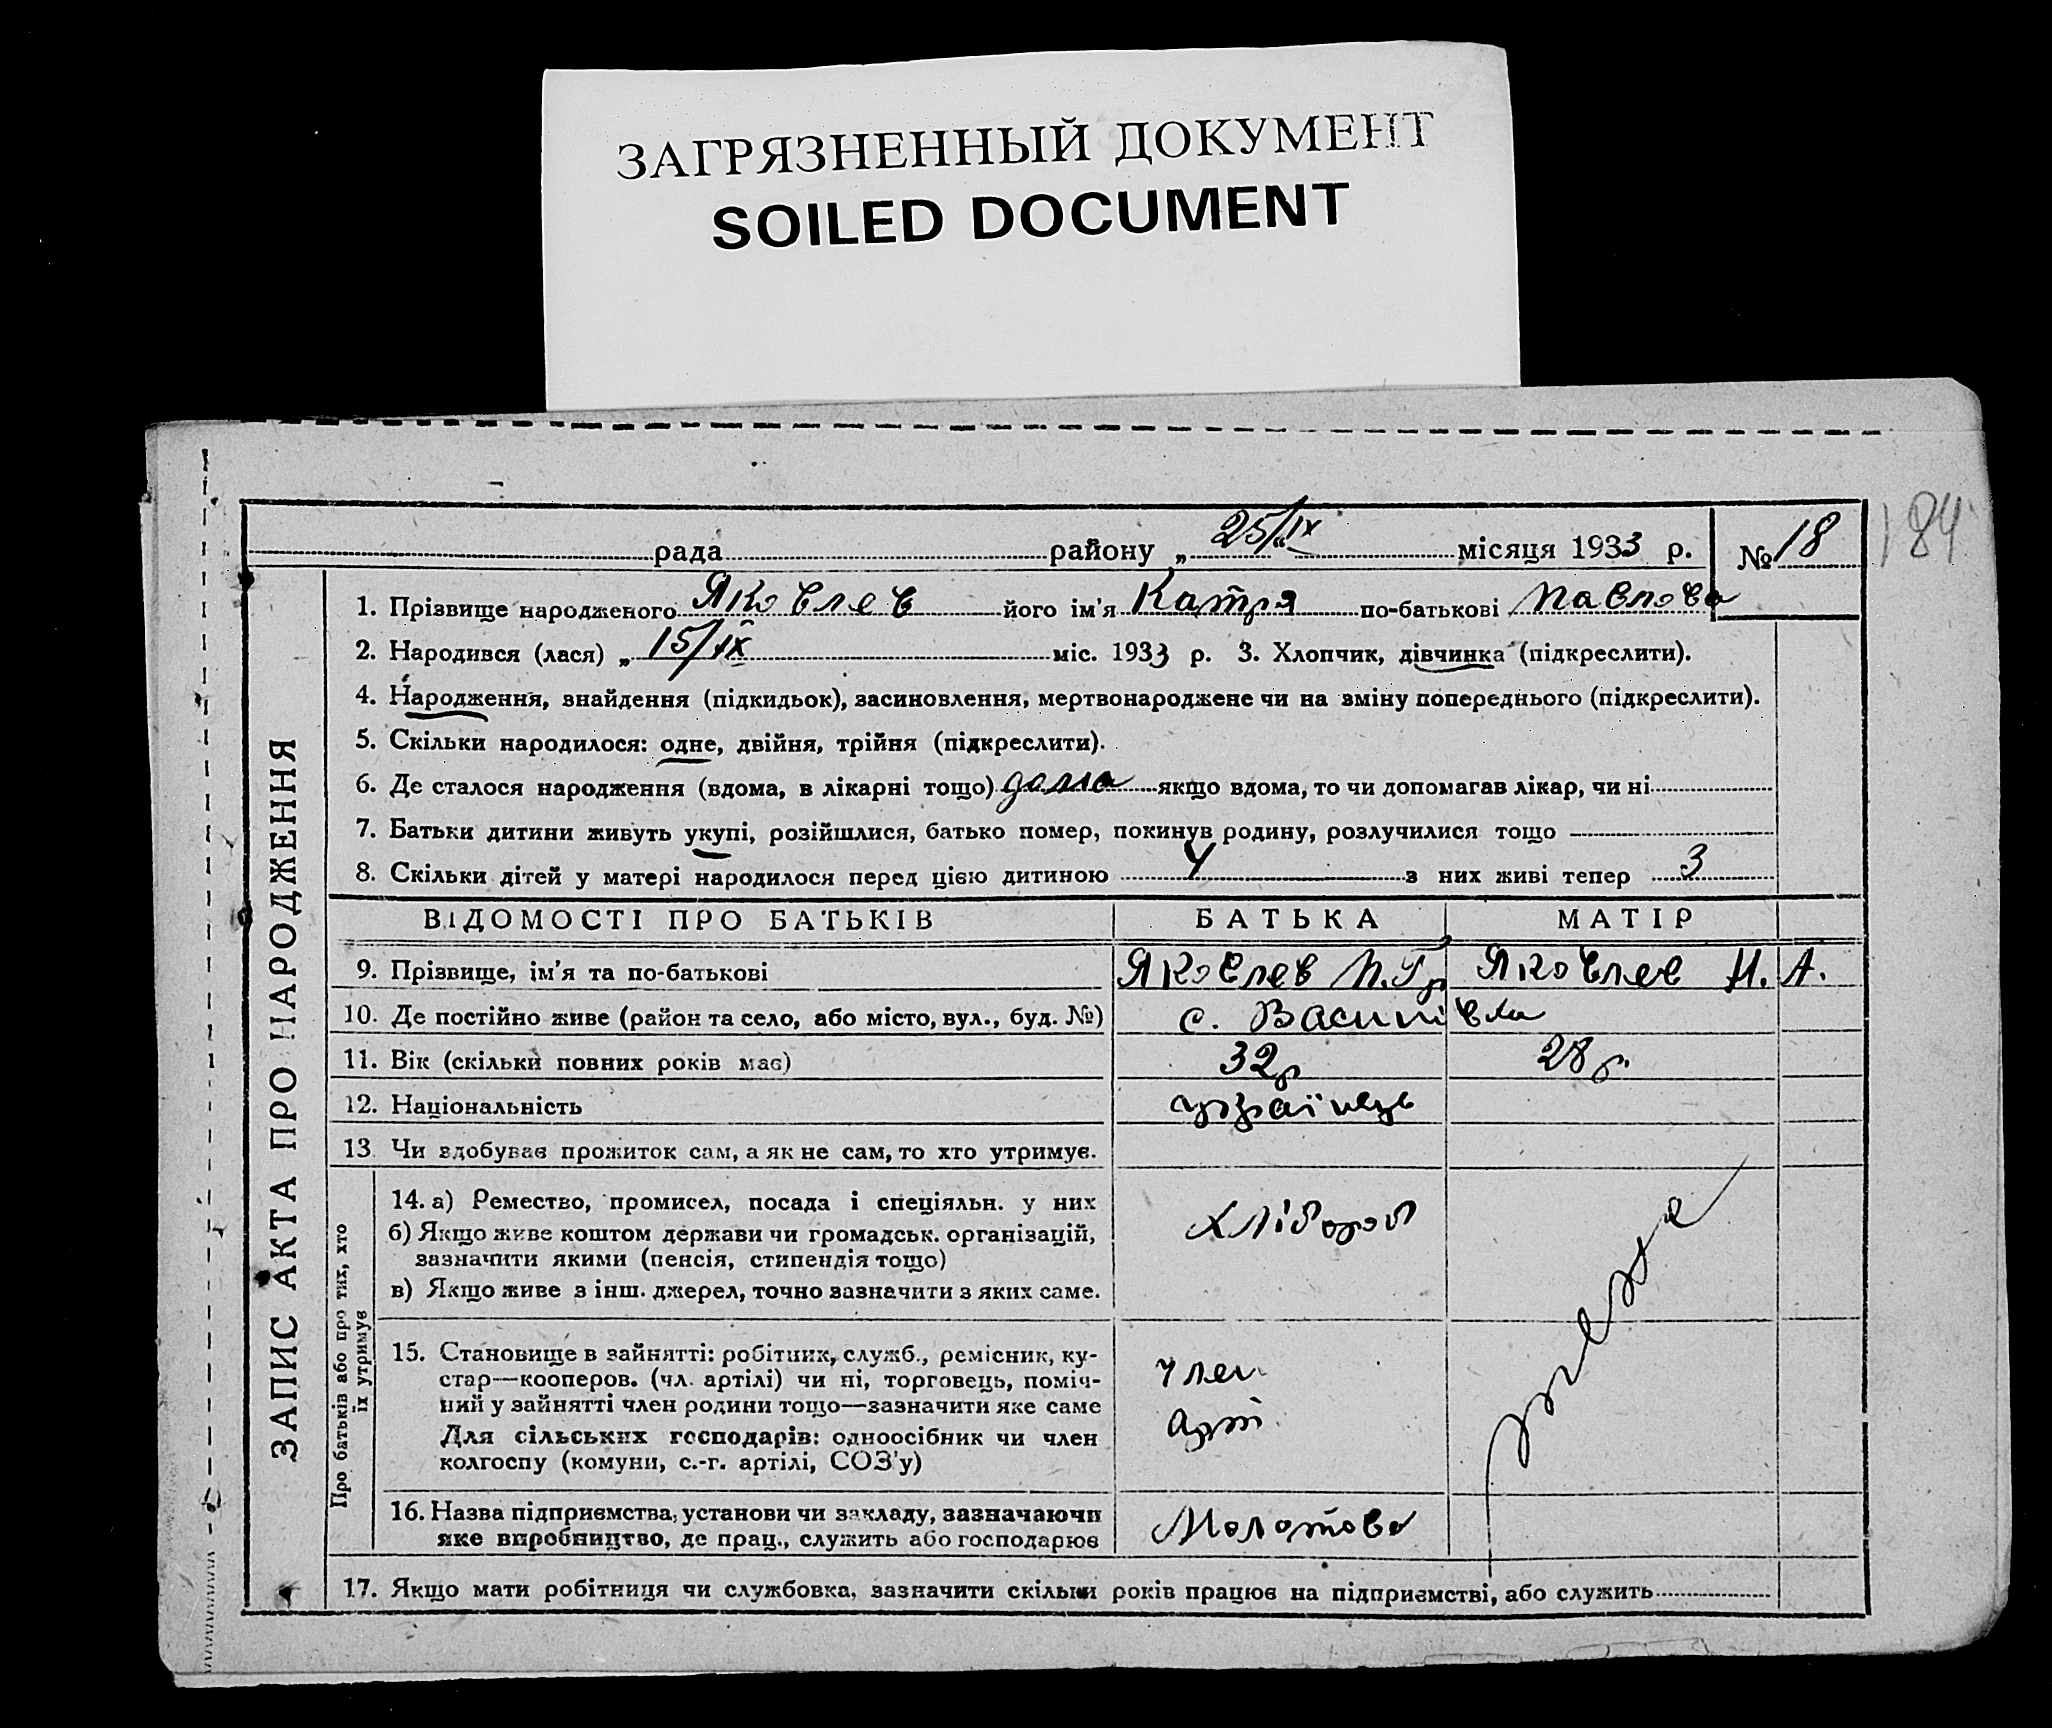 ЗАГРЯЗНЕННЫЙ ДОКУМЕНТ
SOILED DOCUMENT
184
рада району „ 25/IX “ місяця 1933 р. № 18
ЗАПИС АКТА ПРО НАРОДЖЕННЯ
1. Прізвище народженого Яковлев його ім'я Катря по-батькові Павлова
2. Народився (лася) „ 15/IX міс. 1933 р. 3. Хлопчик, дівчинка (підкреслити).
4. Народження, знайдення (підкидьок), засиновлення, мертвонароджене чи на зміну попереднього (підкреслити).
5. Скільки народилося: одне, двійня, трійня (підкреслити).
6. Де сталося народження (вдома, в лікарні тощо) дома якщо вдома, то чи допомагав лікар, чи ні
7. Батьки дитини живуть укупі, розійшлися, батько помер, покинув родину, розлучилися тощо
8. Скільки дітей у матері народилося перед цією дитиною 4 з них живі тепер 3
ВІДОМОСТІ ПРО БАТЬКІВ БАТЬКА МАТІР
9. Прізвище, ім'я та по-батькові Яковлев П. Гр Яковлев Н. А.
10. Де постійно живе (район та село, або місто, вул., буд. №) с.
11. Вік (скільки повних років має) 32р 28 р.
12. Національність українець
13. Чи здобуває прожиток сам, а як не сам, то хто утримує.
Про батьків або про тих, хто
їх утримує
14. а) Ремество, промисел, посада і спеціяльн. у них Хлібороб
б) Якщо живе коштом держави чи громадськ. організацій,
зазначити якими (пенсія, стипендія тощо)
в) Якщо живе з інш. джерел, точно зазначити з яких саме.
15. Становище в зайнятті: робітник, служб., ремісник, ку-
стар—кооперов. (чл. артілі) чи ні, торговець, поміч- член
ний у зайнятті член родини тощо—зазначити яке саме арт
Для сільських господарів: одноосібник чи член
колгоспу (комуни, с.-г. артілі, СОЗ'у)
16. Назва підприємства, установи чи закладу, зазначаючи Молотова
яке виробництво, де прац., служить або господарює
17. Якщо мати робітниця чи службовка, зазначити скільки років працює на підприємстві, або служить